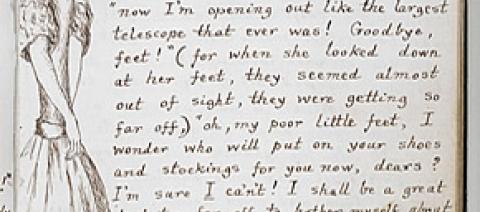 "now I'm opening out like the largest
telescope that ever was! Goodbye,
feet!" (for when she looked down
at her feet, they seemed almost
out of sight, they were getting so
far off,) "oh, my poor little feet, I
wonder who will put on your shoes
and stockings for you now, dears?
I'm sure I can't! I shall be a great